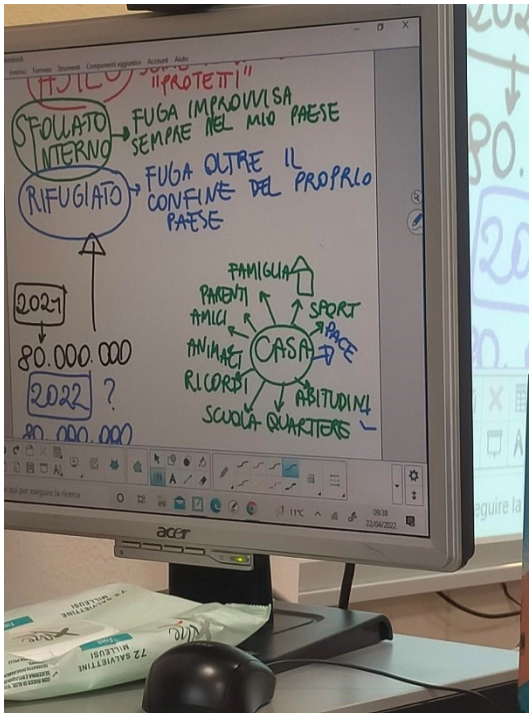 Inserisci Formato Strumenti Componenti aggiuntivi Account Aiuto
ASILO
"PROTETTI"
SFOLLATO INTERNO
FUGA IMPROVVISA
SEMPRE NEL MIO PAESE
RIFUGIATO
FUGA OLTRE IL
CONFINE DEL PROPRIO
PAESE
2021
80.000.000
2022 ?
80.000.000
FAMIGLIA
PARENTI
SPORT
AMICI
PACE
ANIMALI
CASA
RICORDI
ABITUDINI
SCUOLA QUARTIERE
qui per eseguire la ricerca
11°C
09:38
22/04/2022
acer
72 SALVIETTINE
MILLEUSI
72 SALVIETTINE
MILLEUSI
202
80.
20
eguire la